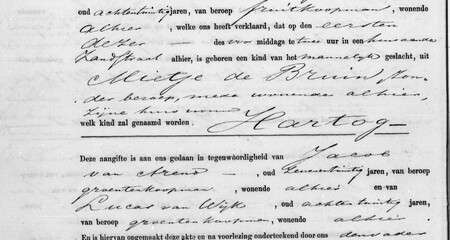 oud achtentwintig jaren, van beroep fruitkoopman, wonende
alhier, welke ons heeft verklaard, dat op den eersten
dezer - des voor middags te twee uur in een huis aande
Zandstraat alhier, is geboren een kind van het mannelijk geslacht, uit
Mietje de Bruin, zon-
der beroep, mede wonende alhier,
zijne huisvrouw
welk kind zal genaamd worden. Hartog
Deze aangifte is aan ons gedaan in tegenwoordigheid van Jacob
van Arend -, oud jaren, van beroep
groentenkoopman, wonende alhier en van
Lucas van Wijk, oud achtentwintig jaren,
van beroep groentenkoopman, wonende alhier.
En is hiervan opgemaakt deze akte en na voorlezing onderteekend door ons